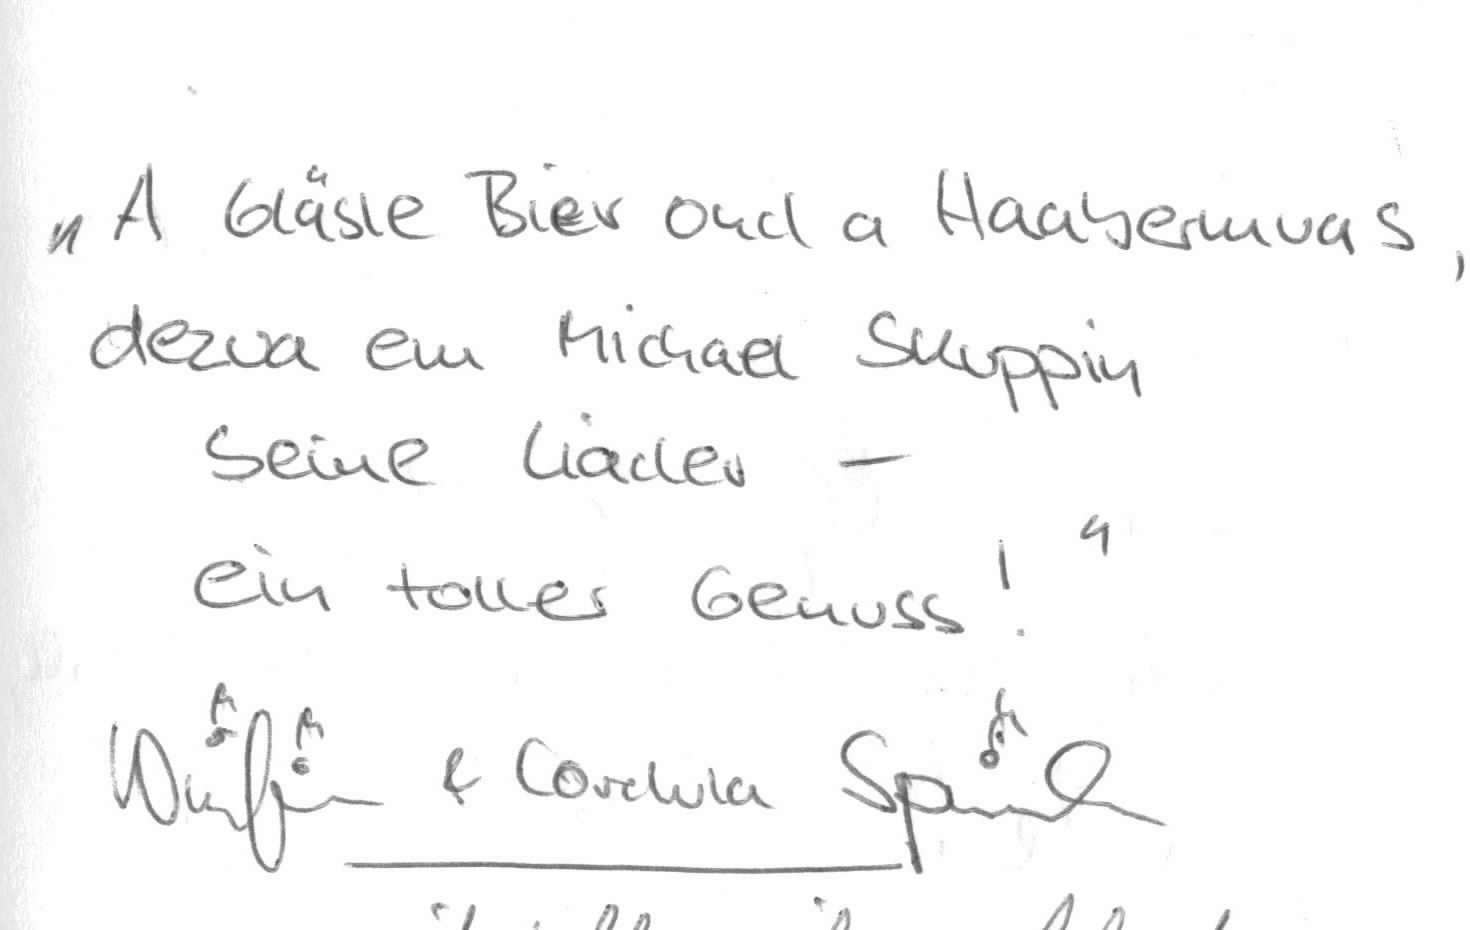 „A Gläsle Bier ond a Haabermuas,
dezua em Michael Skuppin
seine Liader –
ein toller Genuss!“
& Cordula